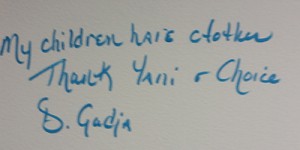 My children have clothes
Thank Yani & Choice
S. Gadja